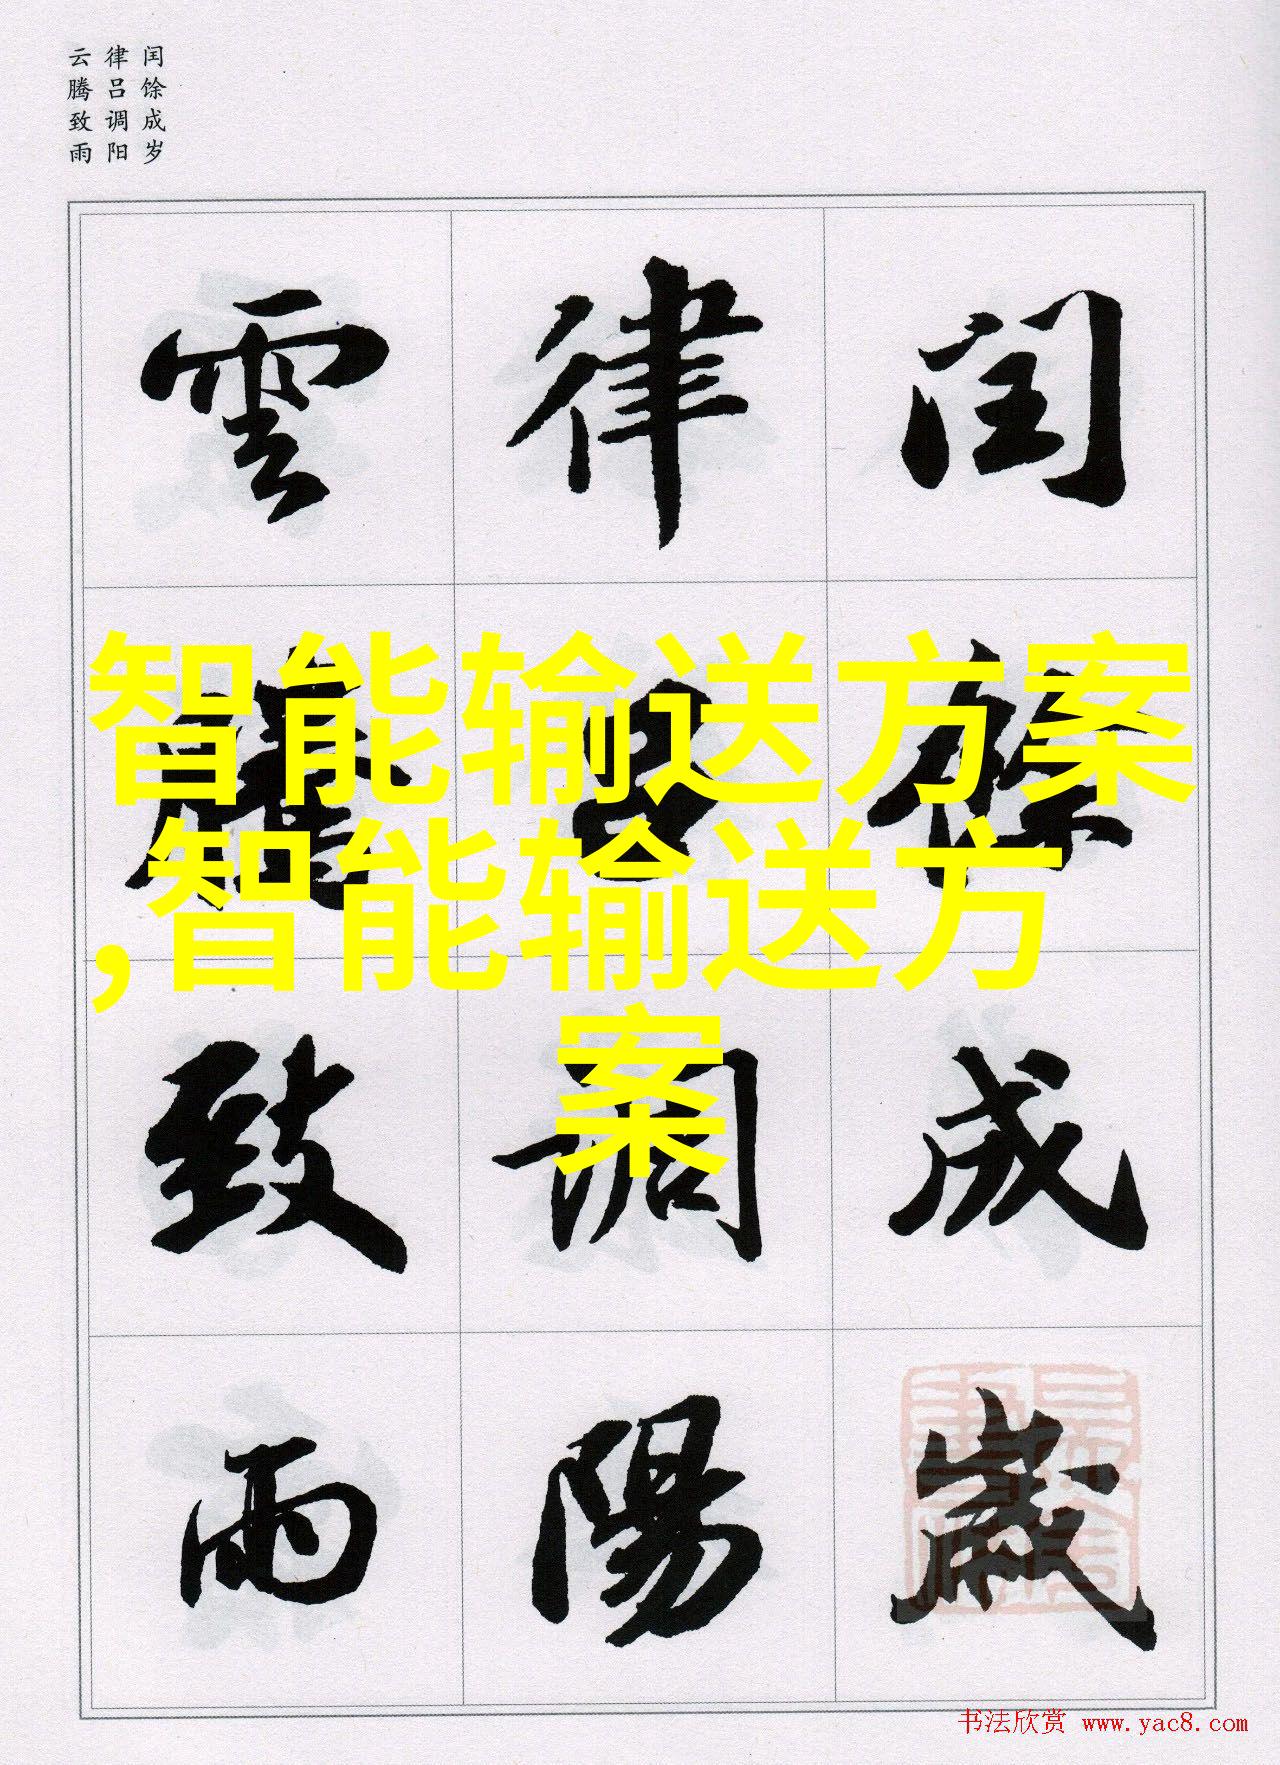 闰馀成岁
律吕调阳
云腾致雨
闰馀成歲
律吕調陽
雲騰致雨
智能输送方案
,智能输送方
案
书法欣赏 www.yac8.com